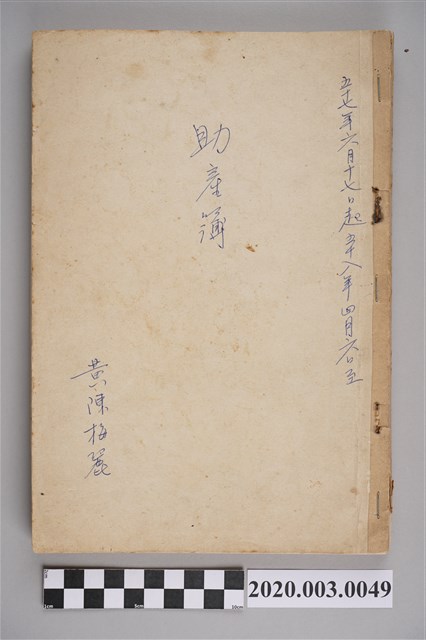 五十七年六月十七日起五十八年四月六日至
助產簿
黃陳梅麗
1cm
5cm
10cm
2020.003.0049